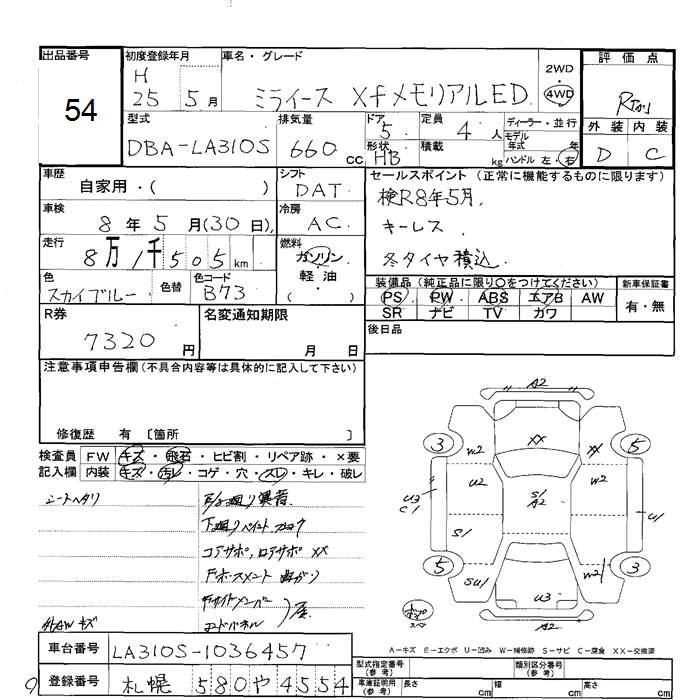 出品番号
54
初度登録年月
H
25 5月
車名・グレード
ミライース Xfメモリアル ED
2WD
・
4WD
評価点
R
外装 内装
D C
型式
DBA-LA310S
排気量
660 cc
ドア
5
形状
HB
定員
4人
積載
kg
ディーラー・並行
モデル
年式 年
ハンドル 左・右
車歴
自家用・( )
シフト
DAT
セールスポイント (正常に機能するものに限ります)
検R8年5月.
キーレス
冬タイヤ積込
車検
8年5月(30日)
冷房
AC
走行
8万1千505km
燃料
ガソリン
軽油
( )
色
スカイブルー
色替
色コード
B73
装備品 (純正品に限り○をつけてください)
PS PW ABS エアB AW
SR ナビ TV カワ
新車保証書
有・無
R券
7320円
名変通知期限
月 日
後日品
注意事項申告欄 (不具合内容等は具体的に記入して下さい)
修復歴 有 〔箇所 〕
検査員
記入欄
FW キズ・飛石・ヒビ割・リペア跡・×要
内装 キズ・汚レ・コゲ・穴・スレ・キレ・破レ
シートヘタリ
下廻りペイント
コアサポ、ロアサポ XX
外AW キズ
A2
3 W2 XX XX 5
U3 U2 S1 W2
C1 A2 U1
S1
5 SU1 W2 3
U3
A2
A-キズ E-エクボ U-凹み W-補修跡 S-サビ C-腐食 XX-交換済
車台番号
LA310S-1036457
登録番号
札幌 580 や 4554
型式指定番号
(参考)
類別区分番号
(参考)
車庫証明用
(参考)
長さ cm
幅 cm
高さ cm